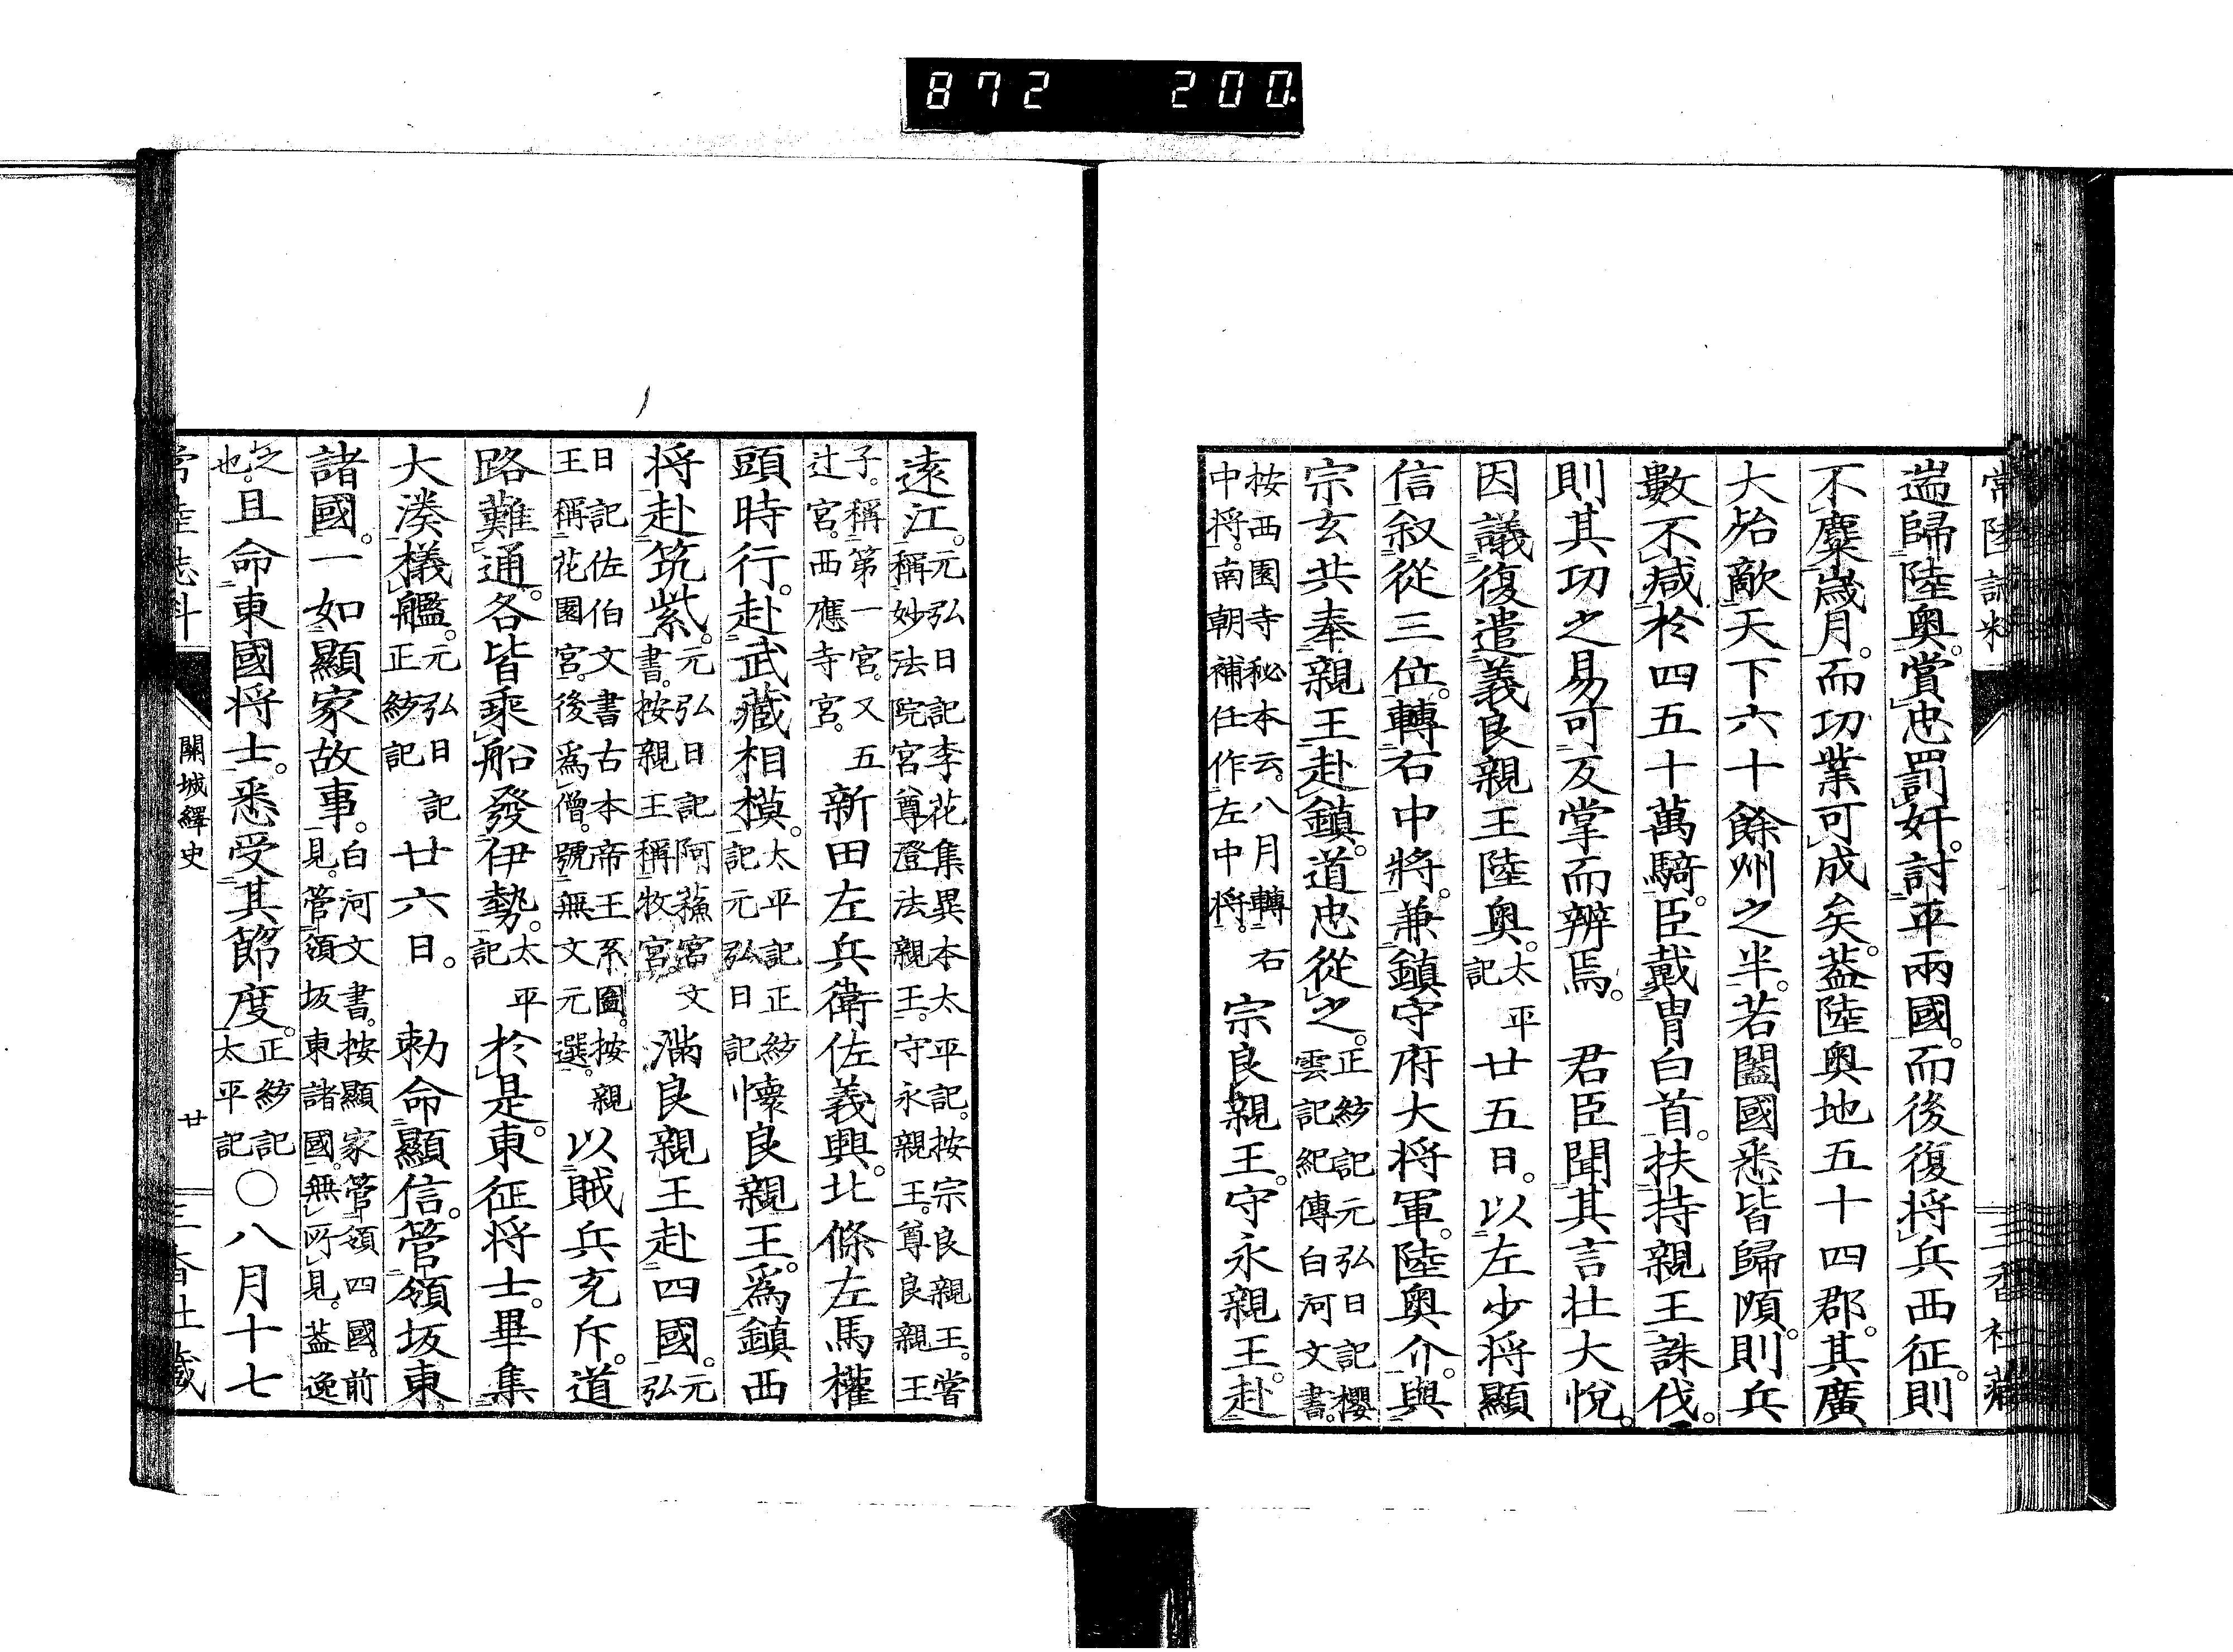 872 200
遄歸陸奥。賞忠罰奸。討平兩國。而後復将兵西征。則
不麋歳月。而功業可成矣。葢陸奥地五十四郡。其廣
大殆敵天下六十餘州之半。若闔國悉皆歸順。則兵
數不減於四五十萬騎。臣戴冑白首。扶持親王誅伐。
則其功之易可反掌而辨焉。 君臣聞其言壮大悅。
因議復遣義良親王陸奥。太平記 廿五日。以左少将顯
信叙從三位。轉右中將。兼鎮守府大将軍。陸奥介。與
宗玄共奉親王赴鎮。道忠從之。正䋄記元弘日記櫻雲記紀傳白河文書。
按西園寺秘本云。八月轉右中将。南朝補任作左中将。 宗良親王。守永親王。赴
遠江。元弘日記李花集異本太平記。按宗良親王。嘗稱妙法院宮尊澄法親王。守永親王。尊良親王王
子。稱第一宮。又五辻宮。西應寺宮。 新田左兵衛佐義興。北條左馬權
頭時行。赴武藏相模。太平記正䋄記元弘日記 懷良親王。爲鎮西
将赴筑紫。元弘日記阿蘓宮文書。按親王稱牧宮。 滿良親王赴四國。元弘
日記佐伯文書古本帝王系圖。按親王稱花園宮。後爲僧。號無文元選。 以賊兵充斥。道
路難通。各皆乘船發伊勢。太平記 於是。東征将士。畢集
大湊檥艦。元弘日記正䋄記 廿六日。 勅命顯信。管領坂東
諸國。一如顯家故事。白河文書。按顯家管領四國。前見。管領坂東諸國。無所見。葢逸
之也。且命東國将士。悉受其節度。正䋄記太平記 〇八月十七
關城繹史
廿